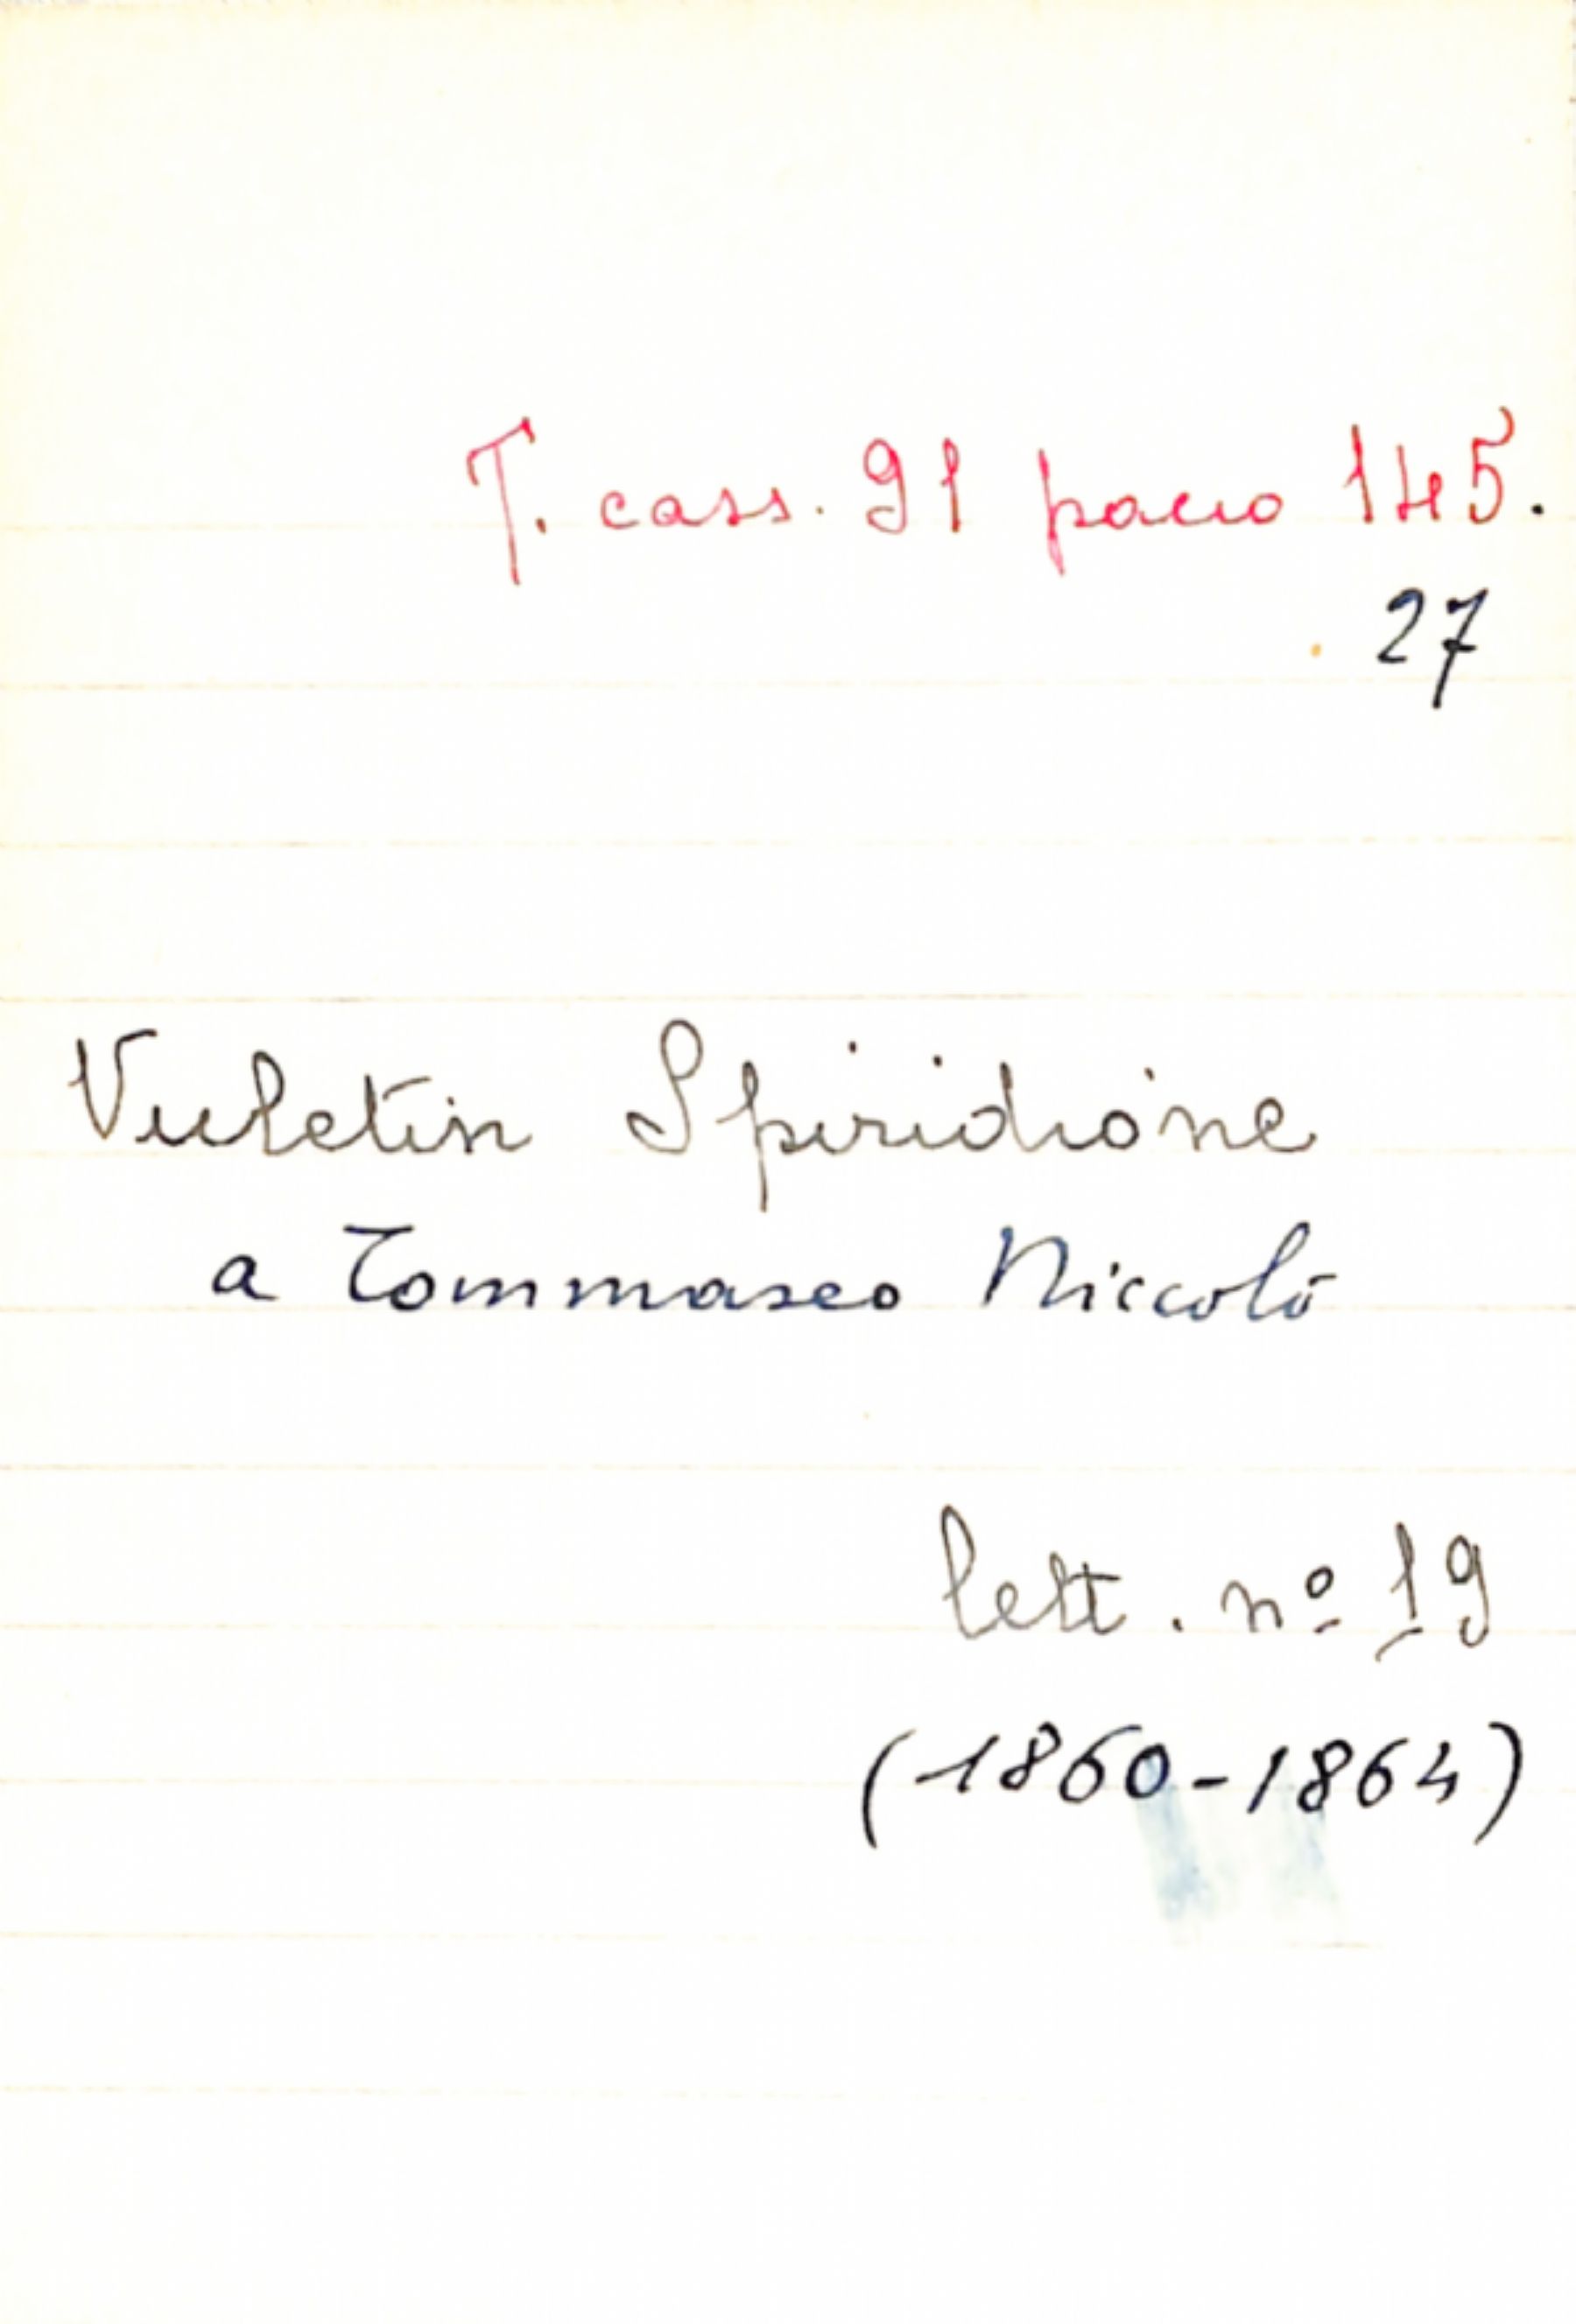 T. cass. 91 pacco 145.
27
Vuletin Spiridione
a Tommaseo Niccolò
lett. nº 19
(1860-1864)